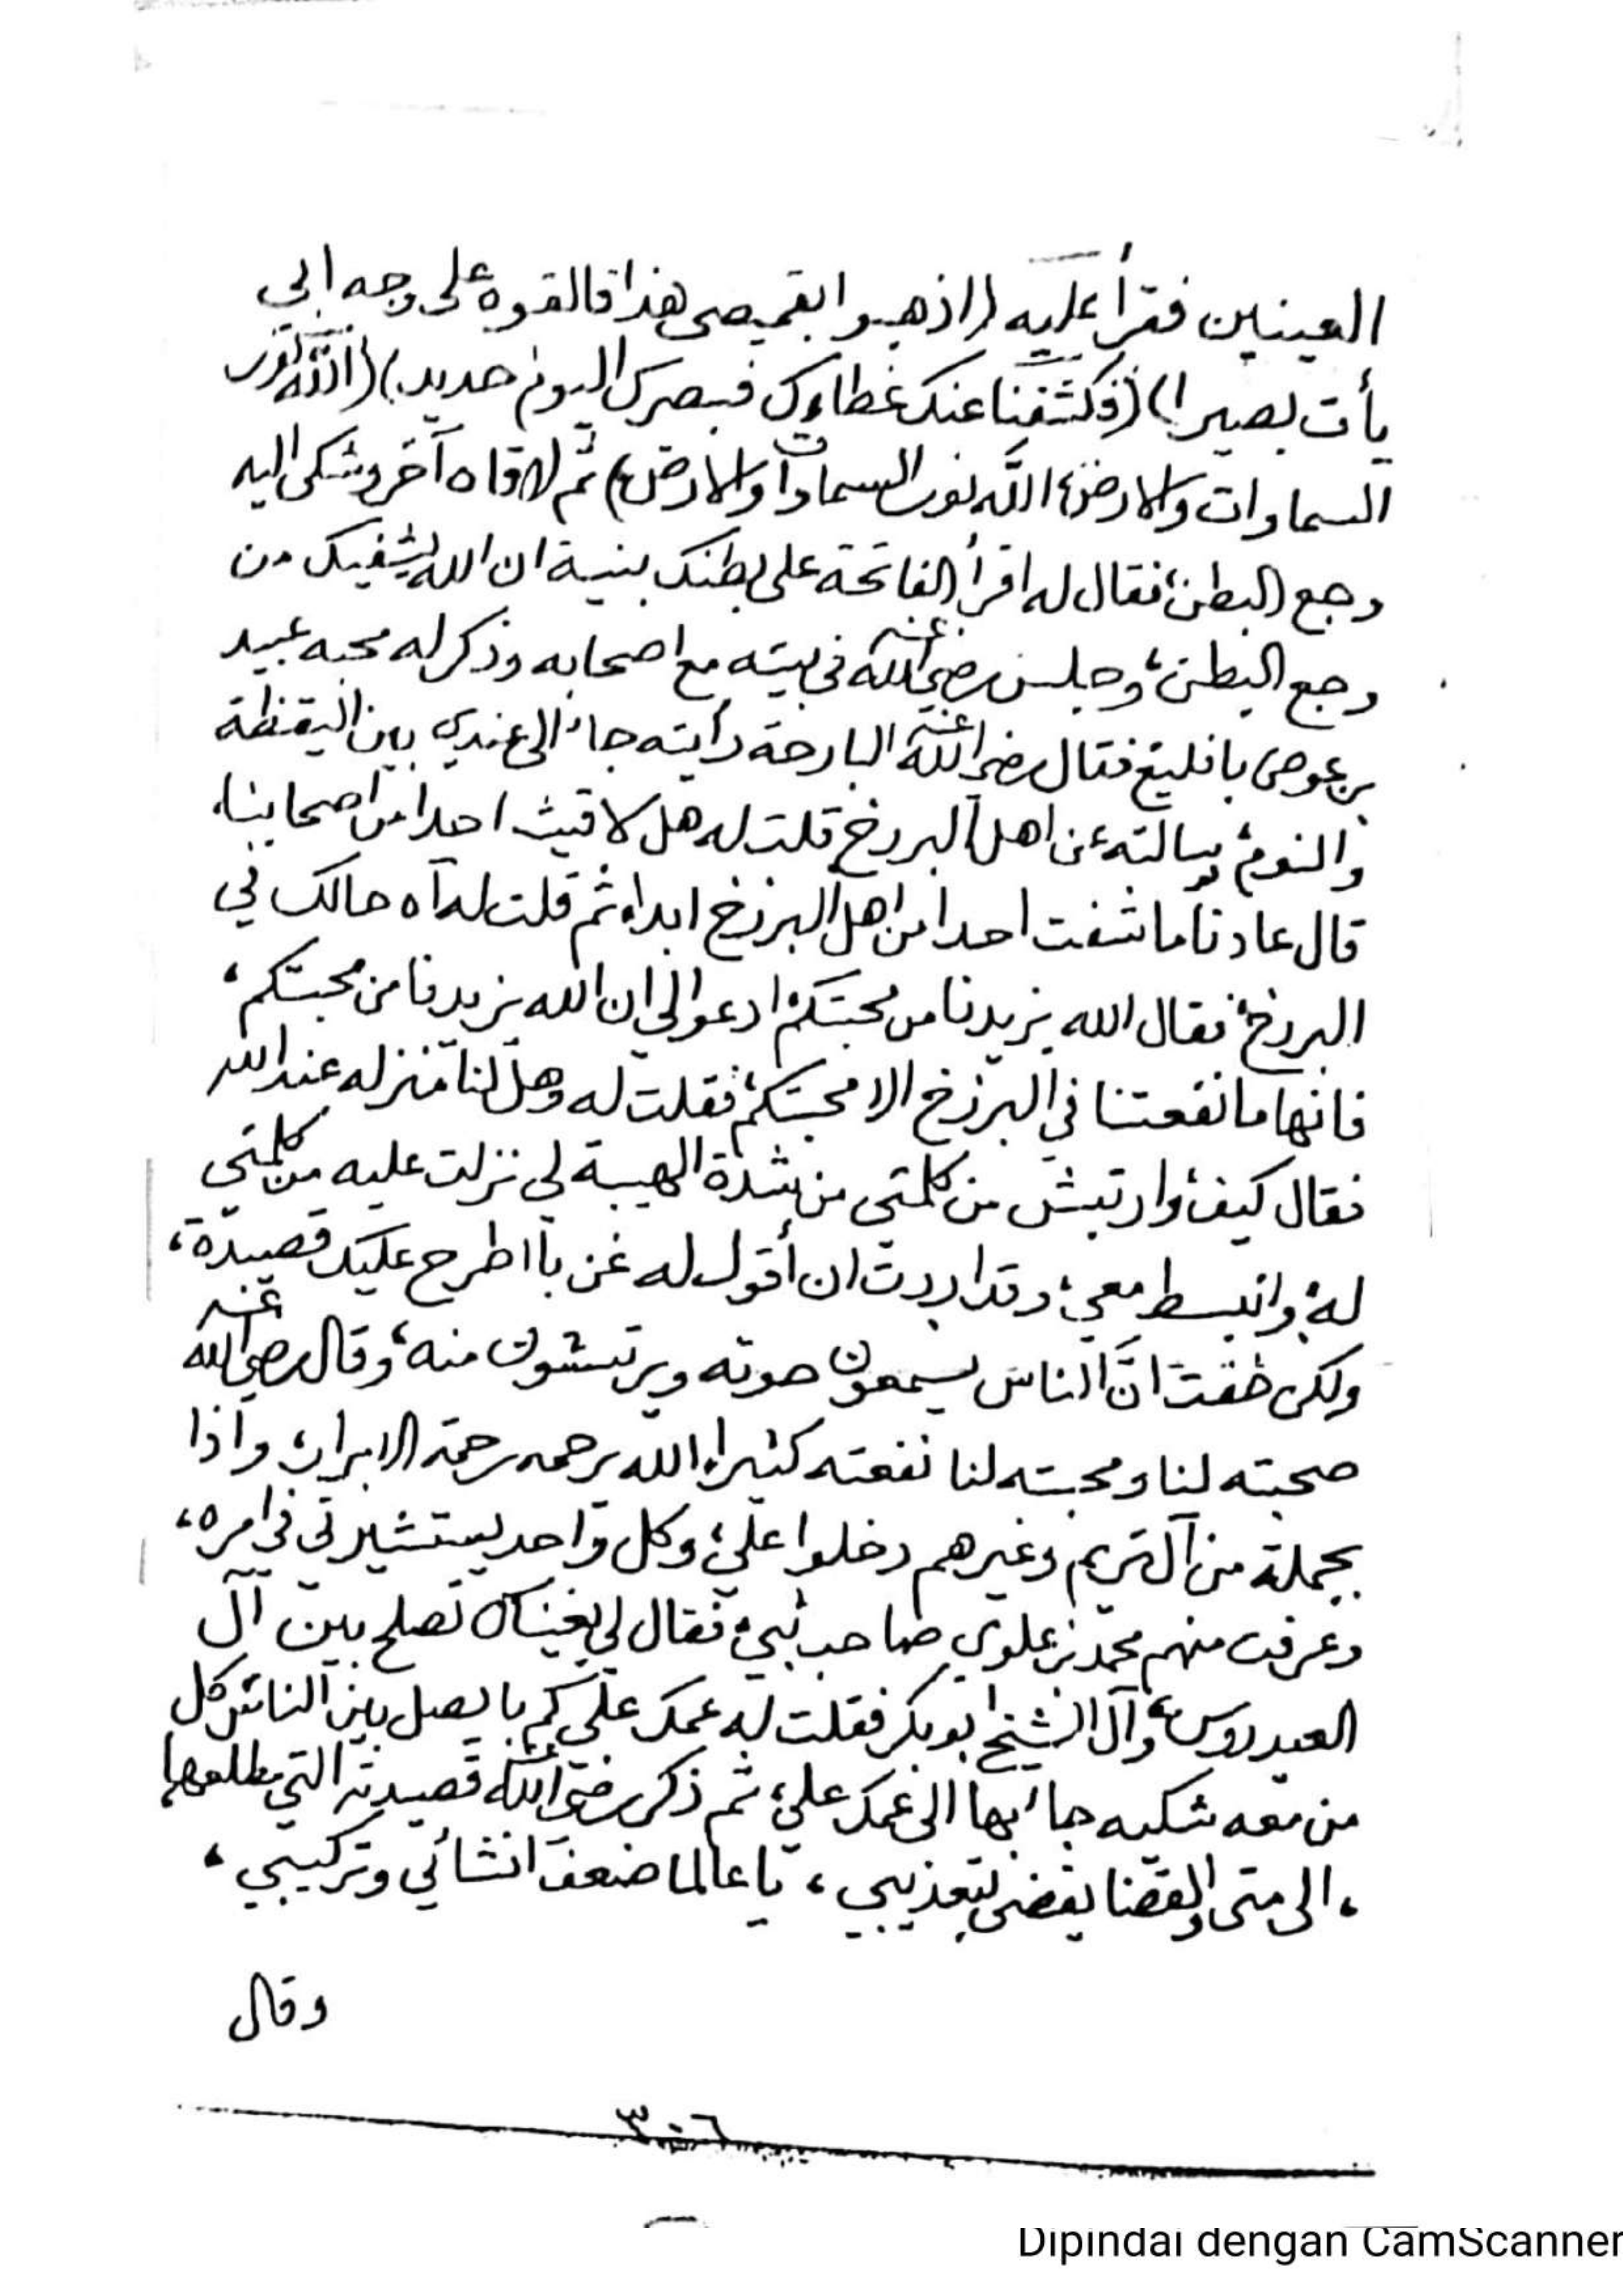 العينين فقرأ عليه (اذهبوا بقميصي هذا فالقوه على وجه ابي
يأت بصيرا) (فكشفنا عنك غطاءك فبصرك اليوم حديد) (الله نور
السماوات والارض، الله نور السماوات والارض) ثم لاقاه آخر وشكى اليه
وجع البطن، فقال له اقرأ الفاتحة على بطنك بنية ان الله يشفيك من
وجع البطن، وجلس رضي الله عنه في بيته مع اصحابه وذكر له محبه عبيد
بن عوض بافليع فقال رضي الله عنه البارحة رأيته جاء الى عندي بين اليقظة
والنوم، وسالته عن اهل البرزخ قلت له هل لاقيت احدا من اصحابنا،
قال عادنا ما شفت احدا من اهل البرزخ ابدا، ثم قلت له آه حالك في
البرزخ، فقال الله يزيدنا من محبتكم، ادعوا لي ان الله يزيدنا من محبتكم،
فانها ما نفعتنا في البرزخ الا محبتكم، فقلت له وهل لنا منزله عند الله
فقال كيف، وارتبش من كلمتي من شدة الهيبة لي نزلت عليه من كلمتي
له، وانبسط معي، وقد اردت ان أقول له غن با اطرح عليك قصيدة،
ولكن خفت انّ الناس يسمعون صوته ويرتبشون منه، وقال رضي الله عنه
صحبته لنا ومحبته لنا نفعته كثيرا، الله يرحمه رحمة الابرار، واذا
بجملة من آل تريم وغيرهم دخلوا عليّ، وكل واحد يستشيرني في امره،
وعرفت منهم محمد بن علوي صاحب ثبي، فقال لي بغيناك تصلح بين آل
العيدروس، وآل الشيخ ابوبكر فقلت له عمك علي كم با يصل بين الناس كل
من معه شكيه جاء بها الى عمك علي، ثم ذكر رضي الله عنه قصيدته التي مطلعها
، الى متى والقضا يقضي بتعذيبي ، يا عالما ضعف انشائي وتركيبي ،
وقال
٣٠٦
Dipindai dengan CamScanner